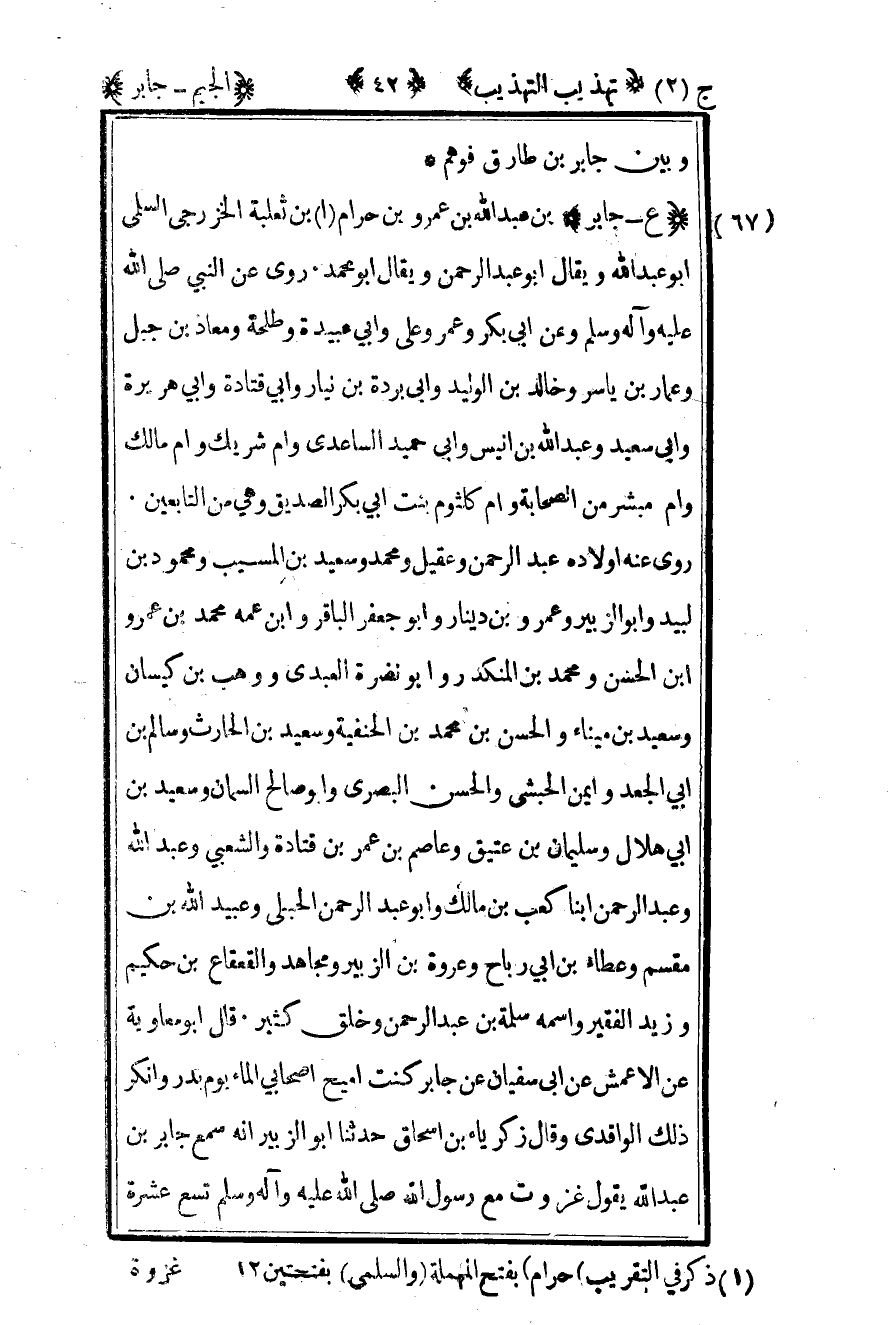 ج (٢) ﴿ تهذيب التهذيب ﴾ ﴿ ٤٢ ﴾ ﴿ الجيم - جابر ﴾
و بين جابر بن طارق فوهم *
(٦٧) ﴿ ع - جابر ﴾ بن عبدالله بن عمرو بن حرام (١) بن ثعلبة الخزرجى السلمى
ابو عبدالله و يقال ابو عبدالرحمن و يقال ابو محمد . روى عن النبي صلى الله
عليه و آله وسلم وعن ابى بكر وعمر وعلى وابي عبيدة وطلحة ومعاذ بن جبل
وعمار بن ياسر وخالد بن الوليد وابى بردة بن نيار وابي قتادة وابي هريرة
وابي سعيد وعبدالله بن انيس وابى حميد الساعدى وام شريك وام مالك
وام مبشر من الصحابة وام كلثوم بنت ابي بكر الصديق وهي من التابعين .
روى عنه اولاده عبد الرحمن وعقيل ومحمد وسعيد بن المسيب ومحمود بن
لبيد وابو الزبير وعمرو بن دينار وابو جعفر الباقر وابن عمه محمد بن عمرو
ابن الحسن و محمد بن المنكدر وابو نضرة العبدى ووهب بن كيسان
وسعيد بن ميناء والحسن بن محمد بن الحنفية وسعيد بن الحارث وسالم بن
ابي الجعد وايمن الحبشى والحسن البصرى وابو صالح السمان وسعيد بن
ابي هلال وسليمان بن عتيق وعاصم بن عمر بن قتادة والشعبي وعبد الله
وعبدالرحمن ابنا كعب بن مالك وابو عبد الرحمن الحبلى وعبيد الله بن
مقسم وعطاء بن ابي رباح وعروة بن الزبير ومجاهد والقعقاع بن حكيم
و زيد الفقير واسمه سلمة بن عبدالرحمن وخلق كثير . قال ابو معاوية
عن الاعمش عن ابى سفيان عن جابر كنت اميح اصحابي الماء يوم بدر وانكر
ذلك الواقدى وقال زكرياء بن اسحاق حدثنا ابو الزبير انه سمع جابر بن
عبدالله يقول غزوت مع رسول الله صلى الله عليه وآله وسلم تسع عشرة
(١) ذكر في التقريب (حرام) بفتح المهملة (والسلمى) بفتحتين ١٢ غزوة